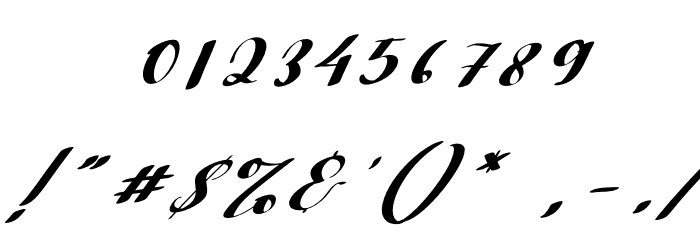 0123456789
!"#$%&'()*,-./